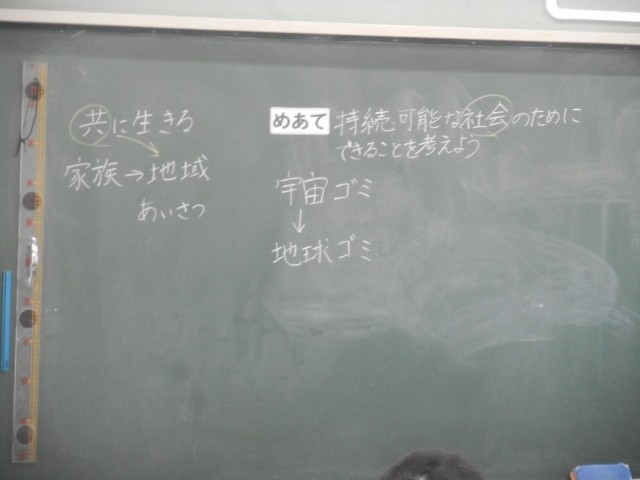 共に生きる
家族→地域
あいさつ
めあて 持続可能な社会のために
できることを考えよう
宇宙ゴミ
↓
地球ゴミ